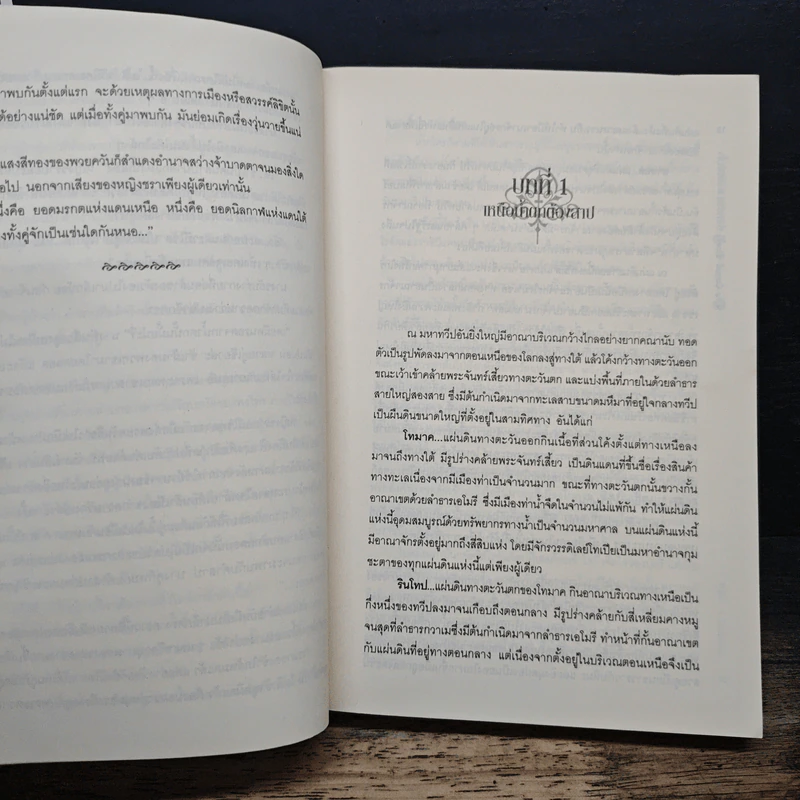 าพบกันตั้งแต่แรก จะด้วยเหตุผลทางการเมืองหรือสวรรค์ลิขิตนั้น
ด้อย่างแน่ชัด แต่เมื่อทั้งคู่มาพบกัน มันย่อมเกิดเรื่องวุ่นวายขึ้นแน่
แสงสีทองของพวยควันก็สำแดงอำนาจสว่างจ้าบาดตาจนมองสิ่งใด
อไป นอกจากเสียงของหญิงชราเพียงผู้เดียวเท่านั้น
นึ่งคือ ยอดมรกตแห่งแดนเหนือ หนึ่งคือ ยอดนิลกาฬแห่งแดนใต้
งทั้งคู่จักเป็นเช่นใดกันหนอ..."
บทที่ 1
เหยือน้ำชาต้องสาป
ณ มหาทวีปอันยิ่งใหญ่มีอาณาบริเวณกว้างไกลอย่างยากคณานับ ทอด
ตัวเป็นรูปพัดลงมาจากตอนเหนือของโลกลงสู่ทางใต้ แล้วโค้งกว้างทางตะวันออก
ขณะเว้าเข้าคล้ายพระจันทร์เสี้ยวทางตะวันตก และแบ่งพื้นที่ภายในด้วยลำธาร
สายใหญ่สองสาย ซึ่งมีต้นกำเนิดมาจากทะเลสาบขนาดมหึมาที่อยู่ใจกลางทวีป
เป็นผืนดินขนาดใหญ่ที่ตั้งอยู่ในสามทิศทาง อันได้แก่
โทมาค...แผ่นดินทางตะวันออกกินเนื้อที่ส่วนโค้งตั้งแต่ทางเหนือลง
มาจนถึงทางใต้ มีรูปร่างคล้ายพระจันทร์เสี้ยว เป็นดินแดนที่ขึ้นชื่อเรื่องสินค้า
ทางทะเลเนื่องจากมีเมืองท่าเป็นจำนวนมาก ขณะที่ทางตะวันตกนั้นขวางกั้น
อาณาเขตด้วยลำธารเอโมรี ซึ่งมีเมืองท่าน้ำจืดในจำนวนไม่แพ้กัน ทำให้แผ่นดิน
แห่งนี้อุดมสมบูรณ์ด้วยทรัพยากรทางน้ำเป็นจำนวนมหาศาล บนแผ่นดินแห่งนี้
มีอาณาจักรตั้งอยู่มากถึงสี่สิบแห่ง โดยมีจักรวรรดิเลย์โทเปียเป็นมหาอำนาจกุม
ชะตาของทุกแผ่นดินแห่งนี้แต่เพียงผู้เดียว
รินโทป...แผ่นดินทางตะวันตกของโทมาค กินอาณาบริเวณทางเหนือเป็น
กึ่งหนึ่งของทวีปลงมาจนเกือบถึงตอนกลาง มีรูปร่างคล้ายกับสี่เหลี่ยมคางหมู
จนสุดที่ลำธารกวาเมซึ่งมีต้นกำเนิดมาจากลำธารเอโมรี ทำหน้าที่กั้นอาณาเขต
กับแผ่นดินที่อยู่ทางตอนกลาง แต่เนื่องจากตั้งอยู่ในบริเวณตอนเหนือจึงเป็น